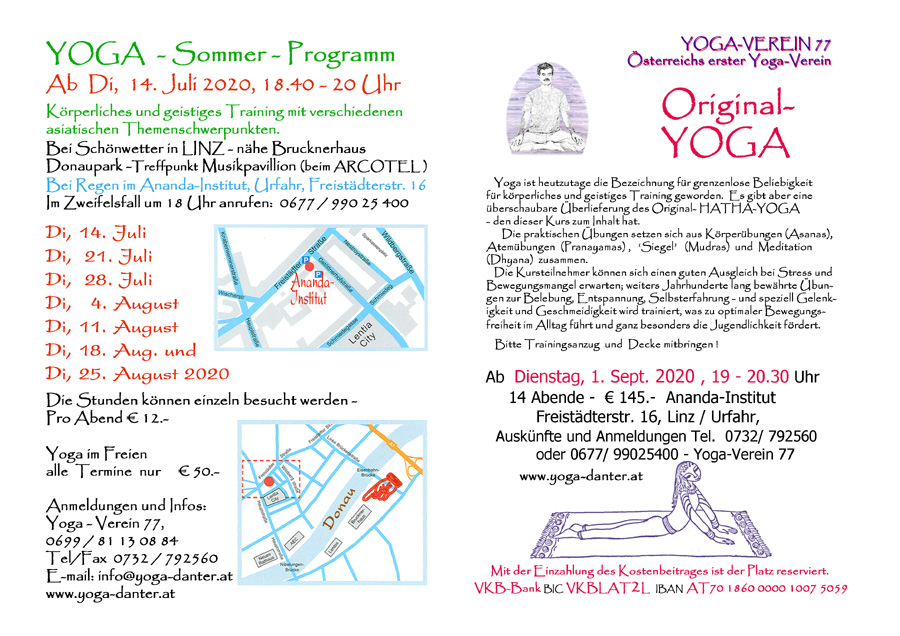 YOGA - Sommer - Programm
Ab Di, 14. Juli 2020, 18.40 - 20 Uhr
Körperliches und geistiges Training mit verschiedenen
asiatischen Themenschwerpunkten.
Bei Schönwetter in LINZ - nähe Brucknerhaus
Donaupark -Treffpunkt Musikpavillion (beim ARCOTEL)
Bei Regen im Ananda-Institut, Urfahr, Freistädterstr. 16
Im Zweifelsfall um 18 Uhr anrufen: 0677 / 990 25 400
Di, 14. Juli
Di, 21. Juli
Di, 28. Juli
Di, 4. August
Di, 11. August
Di, 18. Aug. und
Di, 25. August 2020
Freistädter Straße
Wildbergstraße
P
P
Ananda-
Institut
Hauptstraße
Schmiedegasse
Lentia
City
Die Stunden können einzeln besucht werden -
Pro Abend € 12.-
Yoga im Freien
alle Termine nur € 50.-
Anmeldungen und Infos:
Yoga - Verein 77,
0699 / 81 13 08 84
Tel/Fax 0732 / 792560
E-mail: info@yoga-danter.at
www.yoga-danter.at
Eisenbahn-
Brücke
Lentia
City
Donau
Brucknerhaus
AEC
Lentos
Neues
Rathaus
Nibelungen-
Brücke
YOGA-VEREIN 77
Österreichs erster Yoga-Verein
Original-
YOGA
Yoga ist heutzutage die Bezeichnung für grenzenlose Beliebigkeit
für körperliches und geistiges Training geworden. Es gibt aber eine
überschaubare Überlieferung des Original- HATHA-YOGA
- den dieser Kurs zum Inhalt hat.
Die praktischen Übungen setzen sich aus Körperübungen (Asanas),
Atemübungen (Pranayamas) , 'Siegel' (Mudras) und Meditation
(Dhyana) zusammen.
Die Kursteilnehmer können sich einen guten Ausgleich bei Stress und
Bewegungsmangel erwarten; weiters Jahrhunderte lang bewährte Übun-
gen zur Belebung, Entspannung, Selbsterfahrung - und speziell Gelenk-
igkeit und Geschmeidigkeit wird trainiert, was zu optimaler Bewegungs-
freiheit im Alltag führt und ganz besonders die Jugendlichkeit fördert.
Bitte Trainingsanzug und Decke mitbringen !
Ab Dienstag, 1. Sept. 2020 , 19 - 20.30 Uhr
14 Abende - € 145.- Ananda-Institut
Freistädterstr. 16, Linz / Urfahr,
Auskünfte und Anmeldungen Tel. 0732/ 792560
oder 0677/ 99025400 - Yoga-Verein 77
www.yoga-danter.at
Mit der Einzahlung des Kostenbeitrages ist der Platz reserviert.
VKB-Bank BIC VKBLAT2L IBAN AT70 1860 0000 1007 5059